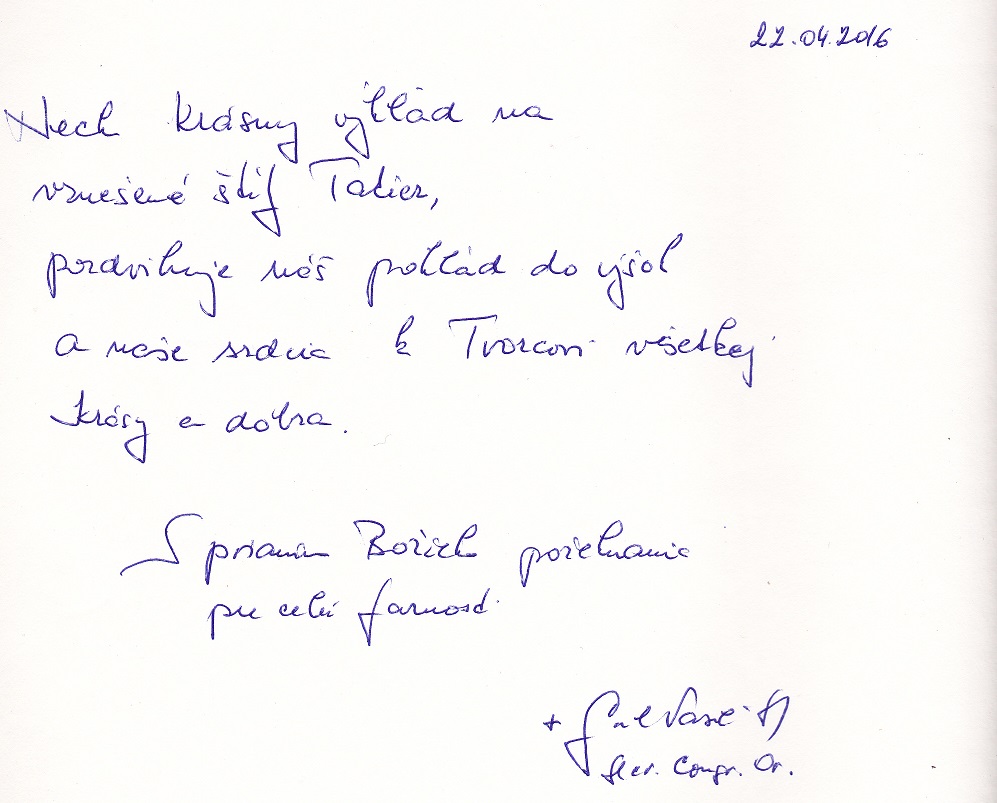 22.04.2016
Nech krásny výhľad na
vznešené štíty Tatier,
pozdvihuje náš pohľad do výšok
a naše srdcia k Tvorcovi všetkej
krásy a dobra.
S prianím Božieho požehnania
pre celú farnosť.
+ Cyril Vasiľ SJ
Secr. Congr. Or.